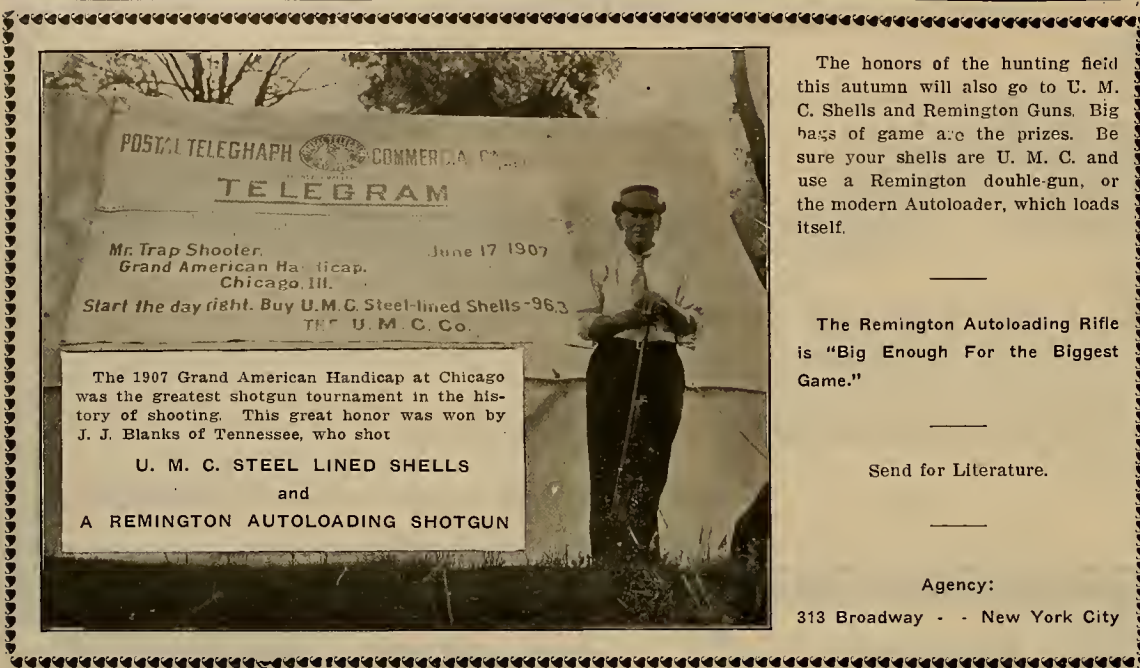 POSTAL TELEGHAPH COMMER
TELEGRAM
Mr. Trap Shooter. June 17 1907
Grand American Ha icap.
Chicago. Ill.
Start the day right. Buy U.M.C. Steel-lined Shells-96.3
THE U. M. C. Co.
The 1907 Grand American Handicap at Chicago
was the greatest shotgun tournament in the his-
tory of shooting. This great honor was won by
J. J. Blanks of Tennessee, who shot
U. M. C. STEEL LINED SHELLS
and
A REMINGTON AUTOLOADING SHOTGUN
The honors of the hunting field
this autumn will also go to U. M.
C. Shells and Remington Guns. Big
bags of game are the prizes. Be
sure your shells are U. M. C. and
use a Remington double-gun, or
the modern Autoloader, which loads
itself.
The Remington Autoloading Rifle
is "Big Enough For the Biggest
Game."
Send for Literature.
Agency:
313 Broadway - - New York City